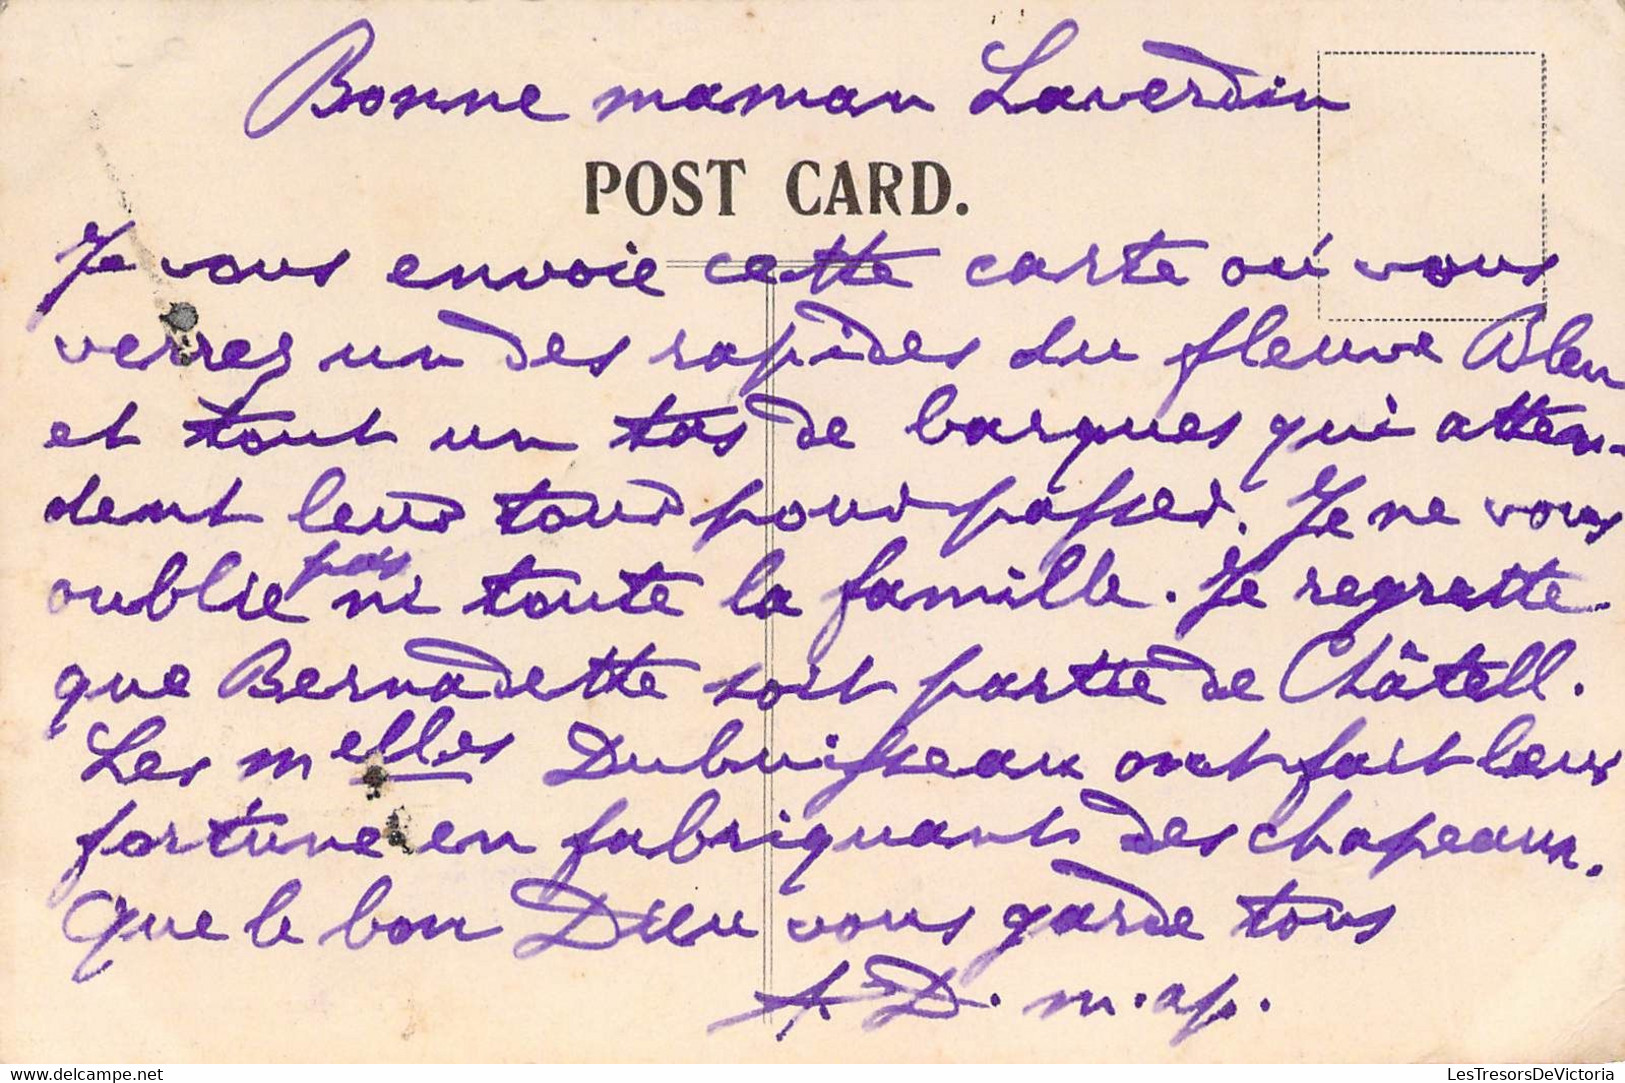 Bonne maman Laverdin
POST CARD.
Je vous envoie cette carte où vous
verrez un des rapides du fleuve Bleu
et tout un tas de barques qui atten-
dent leur tour pour passer. Je ne vous
oublie pas ni toute la famille. Je regrette
que Bernadette soit partie de Châtell.
Les melles Dubuisseau ont fait leur
fortune en fabriquant des chapeaux.
Que le bon Dieu vous garde tous
D. m. ap.
www.delcampe.net
LesTresorsDeVictoria